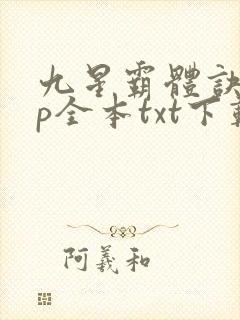 九星霸體訣
p全本txt下載
阿義和